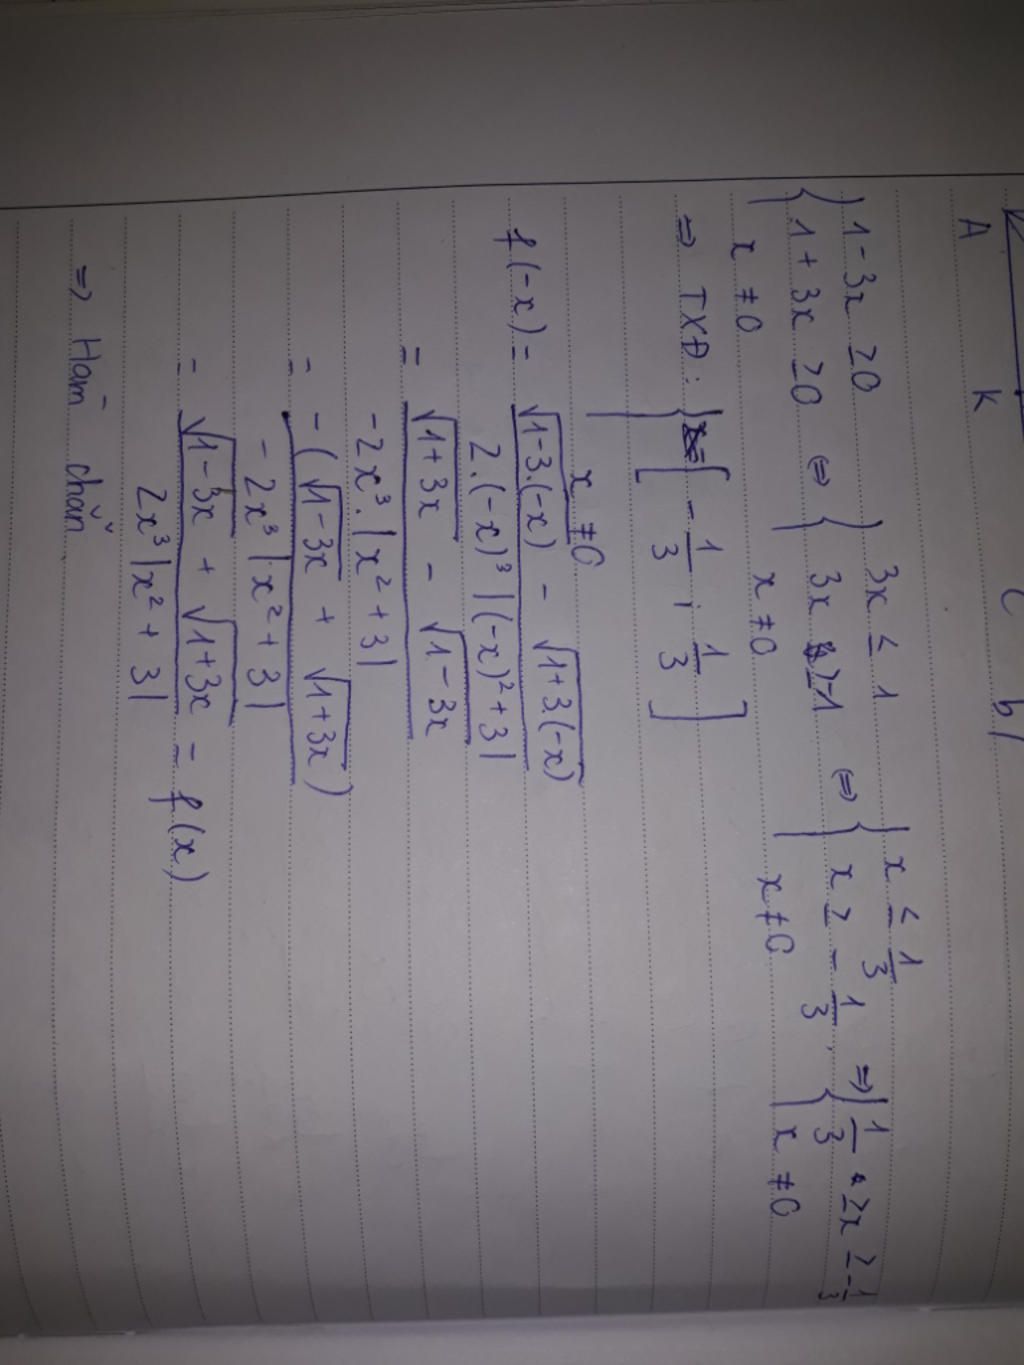 A K C b/
{ 1 - 3x ≥ 0 ⇔ { 3x ≤ 1 ⇔ { x ≤ 1/3 ⇒ { 1/3 ≥ x ≥ -1/3
1 + 3x ≥ 0 3x ≥ -1 x ≥ -1/3
x ≠ 0 x ≠ 0 x ≠ 0 x ≠ 0
⇒ TXĐ: { [ -1/3 ; 1/3 ]
x ≠ 0
f(-x) = (√(1-3.(-x)) - √(1+3(-x))) / (2.(-x)³ |(-x)² + 3|)
= (√(1+3x) - √(1-3x)) / (-2x³.|x² + 3|)
= (-(√(1-3x) + √(1+3x))) / (-2x³ |x² + 3|)
= (√(1-3x) + √(1+3x)) / (2x³ |x² + 3|) = f(x)
⇒ Ham chẵn